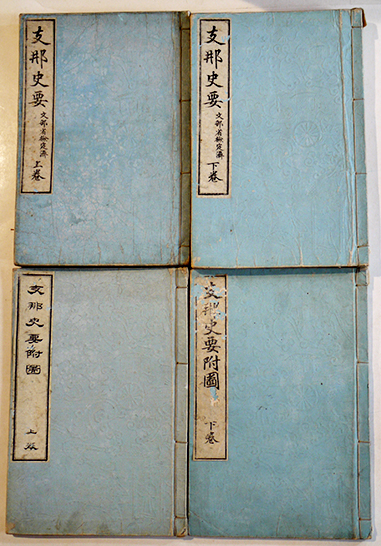 支那史要
文部省檢定濟
上卷
支那史要
文部省檢定濟
下卷
支那史要附圖
上卷
支那史要附圖
下卷